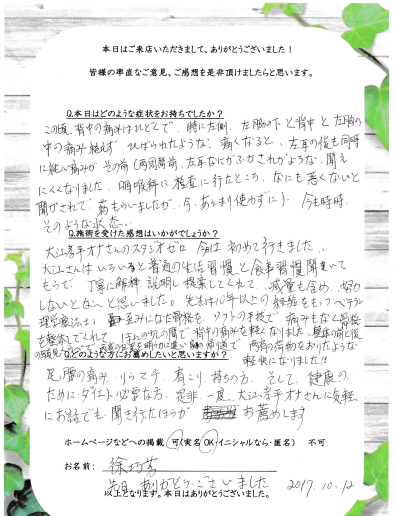 本日はご来店いただきまして、ありがとうございました!
皆様の率直なご意見、ご感想を是非頂けましたらと思います。
Q.本日はどのような症状をお持ちでしたか?
この頃、背中の痛みはひどくで、時に左側、左腕の下と背中と左胸の
中の痛み絶えず ひっぱられたような、痛くなると、左耳の後も同時
に軽い痛みが その前(両周間前、左耳なにかふかされがような、聞え
にくくなりました、咽喉科に検査に行たところ、なにも悪くないと
聞かされて 薬もらいましたが、今、あんまり使わずに)、今も時時、
そのような状態…
Q.施術を受けた感想はいかがでしょうか?
大江孝平オナさんのスタジオゼロ 今回は初めて行きました…
大江さんは いろいろと普通の生活習慣と食事習慣聞いて
もらうで 丁寧に解釋、説明し、提案してくれて、減量も含め、努力
しないとなーと思いました。先生は10年以上の経験をもつベテラン
理学療法士、歪みになる骨格を ソフトの手技で 痛みもなく骨格
を整体してくれて、ほんの少しの間で 背中の痛みを軽くなりました、整体の前と後
両肩の荷物をおりたような
Q.どのような方にお薦めしたいと思いますか?
軽快になりました!!
足、腰の痛み、リウマチ、肩こり、持ちの方、そして、健康の
ためにダイエット必要な方、是非 一度、大江孝平オナさんに気軽
にお話でも 聞き行たほうが お薦めします
ホームページなどへの掲載 可(実名OK・イニシャルなら・匿名) 不可
お名前: 徐巧芳
先日、ありがとうございました
以上となります。本日はありがとうございました。
2017.10.12